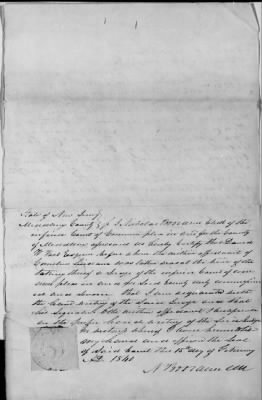 State of New Jersey
Middlesex County SS I Nicholas Booraem Clerk of the
inferior Court of Common pleas in and for the County
of Middlesex aforesaid do hereby Certify that David
W Vail Esquire before whom the within affidavit of
was taken was at the time of the
taking thereof a Judge of the inferior Court of com
mon pleas in and for said County duly commission
ed and sworn that I am acquainted with
the hand writing of the said Judge and that
the signature to the within affidavit
is the proper hand writing of the said Judge
In testimony whereof I have hereunto set
my hand and affixed the Seal
of said Court this 15th day of February
AD. 1841
N Booraem Clk